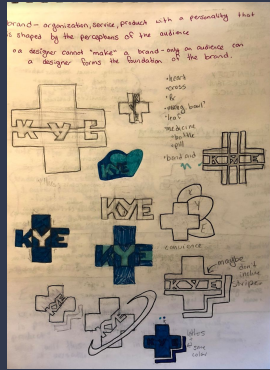 brand - organization, service, product with a personality that
is shaped by the perceptions of the audience
a designer cannot "make" a brand - only an audience can
a designer forms the foundation of the brand.
• heart
• cross
• Rx
bowl"
• leaf
medicine
• bottle
• pill
• band aid
KYE
KYE
KYE
KYE
KYE
KYE
KYE
K
Y
E
endurance
KYE
KYE
maybe
don't
include
stripes
KYE
KYE
KYE
color